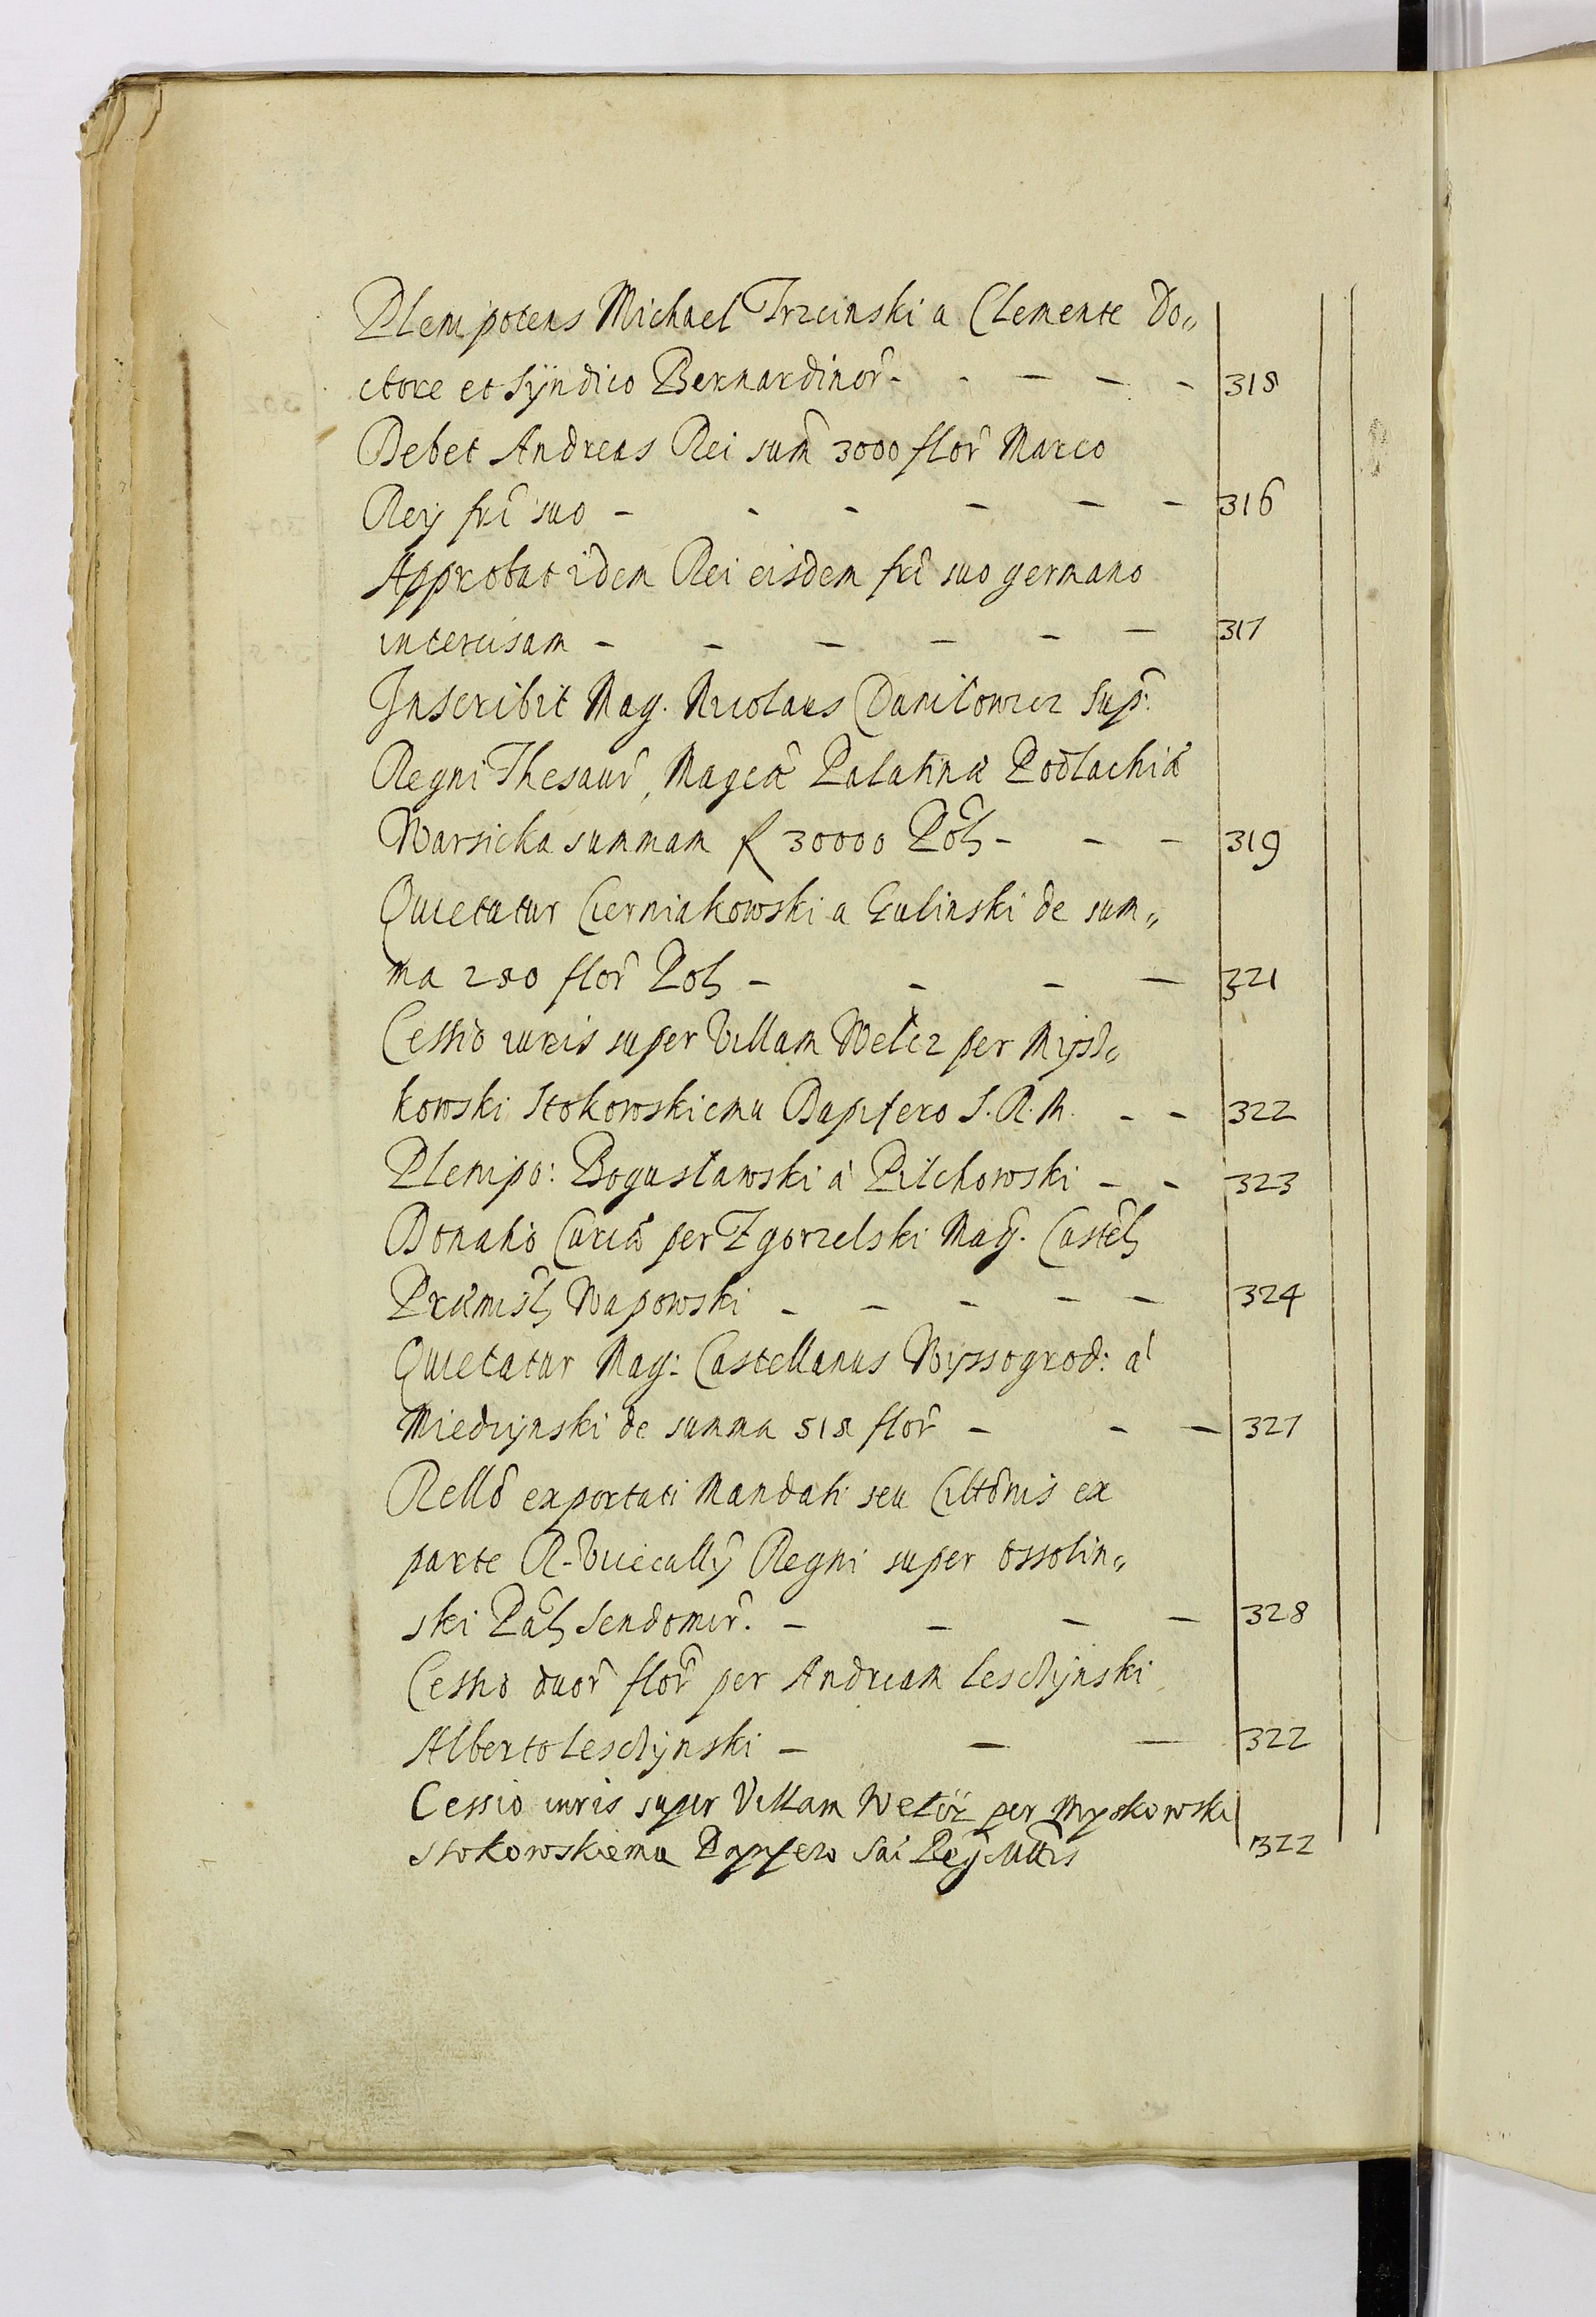 Plenipotens Michael Trzcinski a Clemente Do„
ctore et Syndico Bernardinor̃ - - - - - 315
Debet Andreas Rei sum̃ 3000 flor̃ Marco
Rey fri͂ suo - - - - - - 316
Approbat idem Rei eisdem fri͂ suo germano
intercisam - - - - - - 317
Inscribit Mag. Nicolaus Daniłowicz Sup:
Regni Thesaur̃, Magcæ Palatinæ Podlachiæ
Warsicka summam fl 30000 Pol - - - 319
Quietatur Czerniakowski a Gulinski de sum„
ma 280 flor̃ Pol - - - - 321
Cessio iuris super Villam Wełcz per Mysz„
kowski Stokowskiemu Dapifero S. R. M. - - 322
Plenipo: Bogusławski à Pilchowski - - 323
Donatio Curiæ per Zgorzelski Mag. Castel
Præmisl Wapowski - - - - - 324
Quietatur Mag: Castellanus Wyssogrod: à
Miedzynski de summa 518 flor̃ - - - 327
Rello exportati Mandati seu Cittõnis ex
parte R. Regni super Ossolin„
ski Pal Sendomir̃. - - - - 328
Cessio duor̃ flor̃ per Andream Lesczynski
Alberto Lesczynski - - - 322
Cessio iuris super Villam Wełcz per Myskowski
Stokowskiemu Dapifero Sac Reg Mttis 322